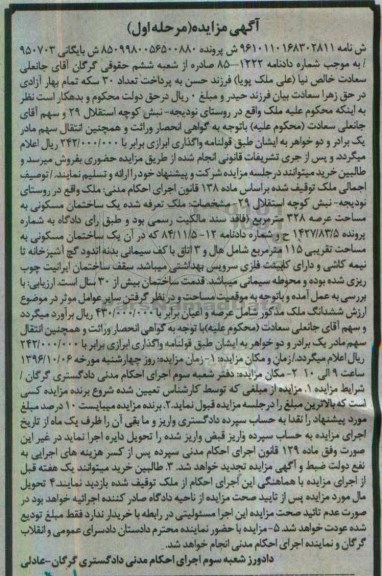 آگهی مزایده (مرحله اول)
ش نامه ۹۶۱۰۱۱۰۱۶۸۳۰۲۸۱۱ ش پرونده ۸۵۰۹۹۸۰۰۵۶۵۰۰۸۸۰ ش بایگانی ۹۵۰۷۰۳
/ به موجب شماره دادنامه ۱۲۲۲-۸۵ صادره از شعبه ششم حقوقی گرگان آقای جانعلی
سعادت خالص نیا (علی ملک پویا) فرزند حسن به پرداخت تعداد ۳۰ سکه تمام بهار آزادی
در حق زهرا سعادت بیان فرزند حیدر و مبلغ ۰ ریال در حق دولت محکوم و بدهکار است نظر
به اینکه محکوم علیه ملک واقع در روستای نودیجه- نبش کوچه استقلال ۲۹ و سهم آقای
جانعلی سعادت (محکوم علیه) باتوجه به گواهی انحصار وراثت و همچنین انتقال سهم مادر
یک برادر و دو خواهر به ایشان طبق قولنامه واگذاری ابرازی برابر با ۲۴۲/۰۰۰/۰۰۰ ریال اعلام
میگردد و پس از جری تشریفات قانونی انجام شده از طریق مزایده حضوری بفروش میرسد و
طالبین خرید میتوانند در جلسه مزایده شرکت و پیشنهاد خود را ارائه و تسلیم نمایند./ توصیف
اجمالی ملک توقیف شده براساس ماده ۱۳۸ قانون اجرای احکام مدنی: ملک واقع در روستای
نودیجه- نبش کوچه استقلال ۲۹- مشخصات: ملک تعرفه شده یک ساختمان مسکونی به
مساحت عرصه ۳۲۸ مترمربع (فاقد سند مالکیت رسمی بود و طبق رای دادگاه به شماره
پرونده ۱۴۲۷/۸۳/۵ ح و شماره دادنامه ۱۲-۸۴/۱۱/۵) که در آن یک ساختمان مسکونی به
مساحت تقریبی ۱۱۵ مترمربع شامل هال و ۳ اتاق با کف سیمانی بدنه اندود گچ آشپزخانه تا
نیمه کاشی و دارای کابینت فلزی سرویس بهداشتی میباشد. سقف ساختمان ایرانیت چوب
ریزی شده بوده و محوطه سیمانی میباشد. قدمت ساختمان بیش از ۳۰ سال است. ارزیابی: با
بررسی به عمل آمده و باتوجه به موقعیت مساحت و در نظر گرفتن سایر عوامل موثر در موضوع
ارزش ششدانگ ملک مذکور شامل عرصه و اعیان برابر با ۴۳۰/۰۰۰/۰۰۰ ریال برآورد میگردد
و سهم آقای جانعلی سعادت (محکوم علیه) با توجه به گواهی انحصار وراثت و همچنین انتقال
سهم مادر یک برادر و دو خواهر به ایشان طبق قولنامه واگذاری ابرازی برابر با ۲۴۲/۰۰۰/۰۰۰
ریال اعلام میگردد./زمان و مکان مزایده: ۱- زمان مزایده: روز چهارشنبه مورخه ۱۳۹۶/۱۰/۰۶
ساعت ۹ الی ۱۰ ۲- مکان مزایده: دفتر شعبه سوم اجرای احکام مدنی دادگستری گرگان /
شرایط مزایده ۱. مزایده از مبلغی که توسط کارشناس تعیین شده شروع برنده مزایده کسی
است که بالاترین مبلغ را در جلسه مزایده قبول نماید. ۲. برنده مزایده میبایست ۱۰ درصد مبلغ
مورد پیشنهاد را نقدا به حساب سپرده دادگستری واریز و ما بقی آن را ظرف یک ماه از تاریخ
اجرای مزایده به حساب سپرده واریز قبض واریز شده را تحویل دایره اجرا نماید در غیر این
صورت وفق ماده ۱۲۹ قانون اجرای احکام مدنی سپرده پس از کسر هزینه های اجرایی به
نفع دولت ضبط و آگهی مزایده تجدید خواهد شد. ۳. طالبین خرید میتوانند یک هفته قبل
از اجرای مزایده با هماهنگی این اجرای احکام از ملک توقیف شده بازدید نمایند. ۴ تحویل
مال مورد مزایده پس از تایید صحت مزایده از ناحیه دادگاه صادر کننده اجرائیه خواهد بود در
صورت عدم تائید صحت مزایده این اجرا مسئولیتی در رابطه با خریدار ندارد فقط مبلغ تودیع
شده عودت خواهد شد. ۵- مزایده با حضور نماینده محترم دادستان دادسرای عمومی و انقلاب
گرگان و نماینده اجرای احکام مدنی انجام خواهد شد.
دادورز شعبه سوم اجرای احکام مدنی دادگستری گرگان-عادلی